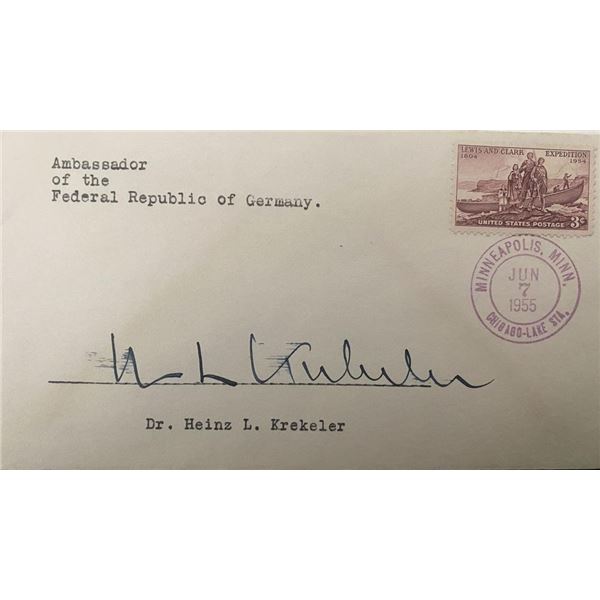 Ambassador
of the
Federal Republic of Germany.
LEWIS AND CLARK EXPEDITION
1804 1954
UNITED STATES POSTAGE 3¢
MINNEAPOLIS, MINN.
JUN
7
1955
CHICAGO-LAKE STA.
H L Krekeler
Dr. Heinz L. Krekeler